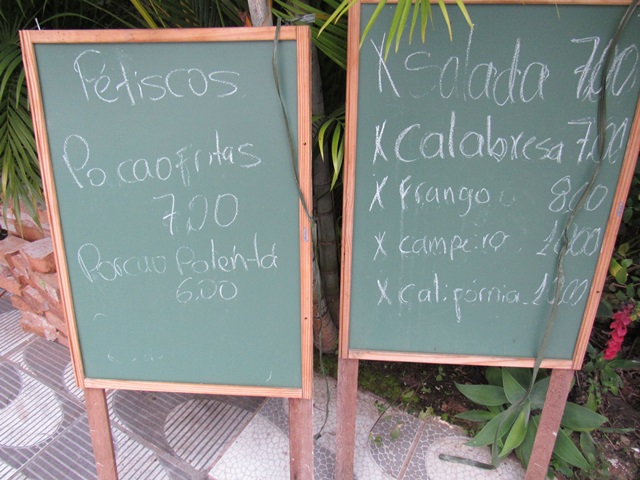 Fétiscos
Porcao fritas
7.00
Porcao Polen-ta
6.00
X Salada 7.00
X Calabresa 7.00
X frango 8.00
X campeiro. 10.00
X califórnia. 10.00